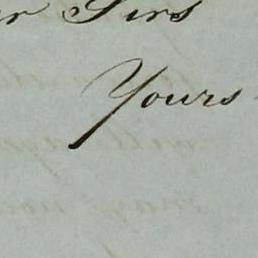 Sirs
Yours